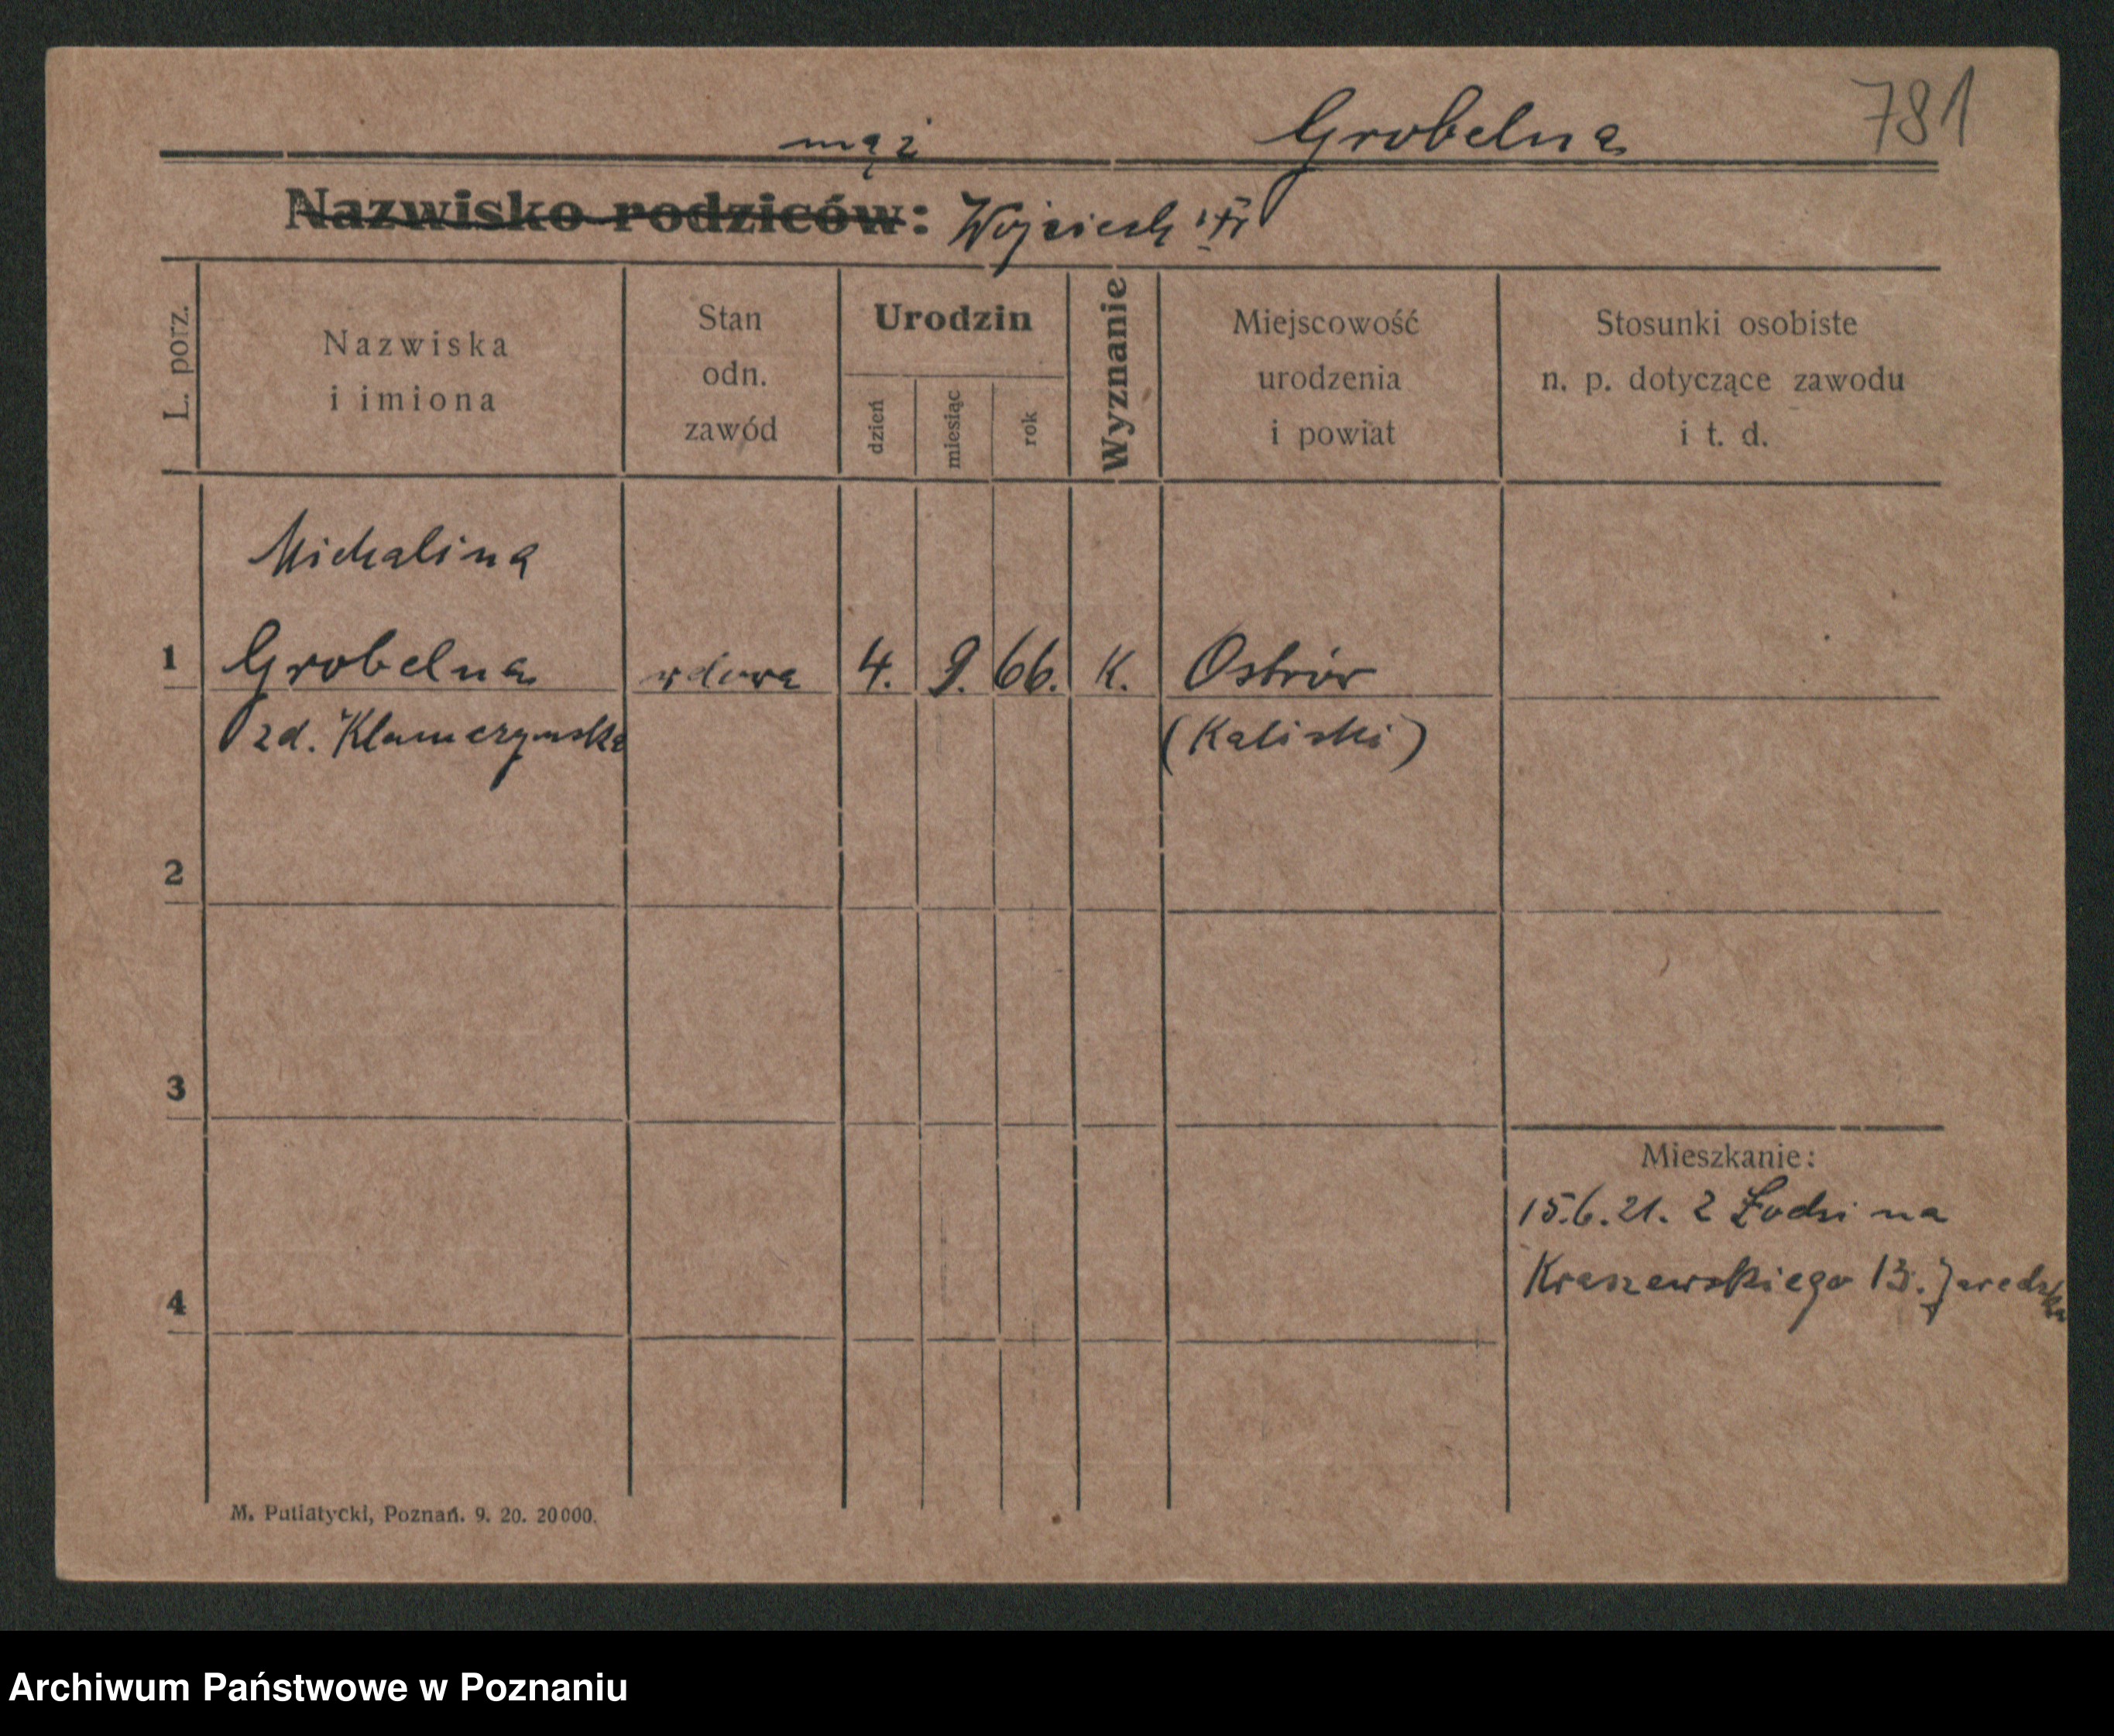 781
mąż Grobelna
Nazwisko rodziców: Wojciech
L. porz.
Nazwiska
i imiona
Stan
odn.
zawód
Urodzin
dzień
miesiąc
rok
Wyznanie
Miejscowość
urodzenia
i powiat
Stosunki osobiste
n. p. dotyczące zawodu
i t. d.
Michalina
1 Grobelna wdowa 4. 9. 66. K. Ostrów
zd. (Kaliski)
2
3
Mieszkanie:
15.6.21. z Łodzi na
4 Kraszewskiego 13.
M. Putiatycki, Poznań. 9. 20. 20000.
Archiwum Państwowe w Poznaniu